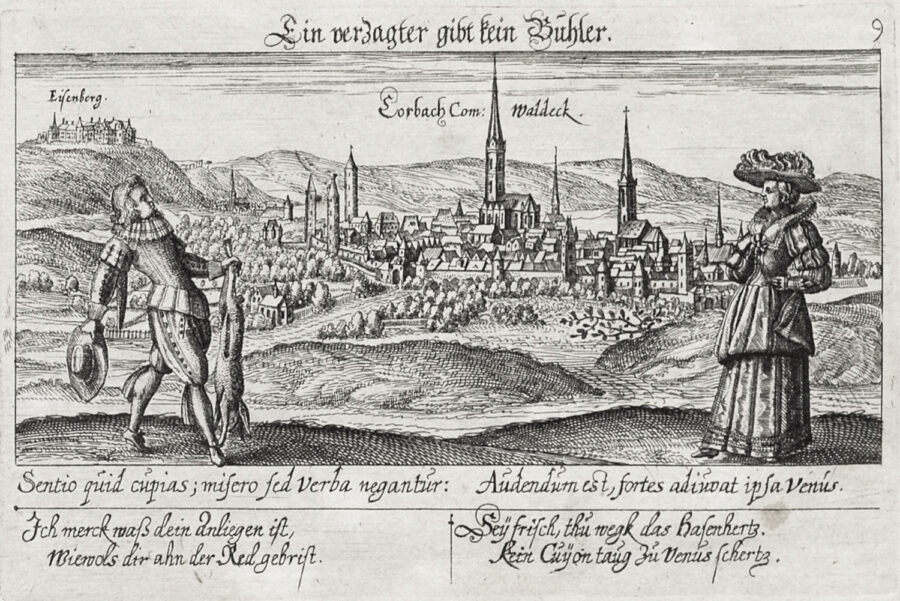 Ein verzagter gibt kein Buhler.
9
Eisenberg.
Corbach Com: Waldeck.
Sentio quid cupias; misero sed verba negantur: Audendum est, fortes adiuvat ipsa Venus.
Ich merck waß dein anliegen ist,
Wiewols dir ahn der Red gebrist.
Sey frisch, thu wegk das Hasenhertz.
Kein Cuyon taug zu Venus schertz.